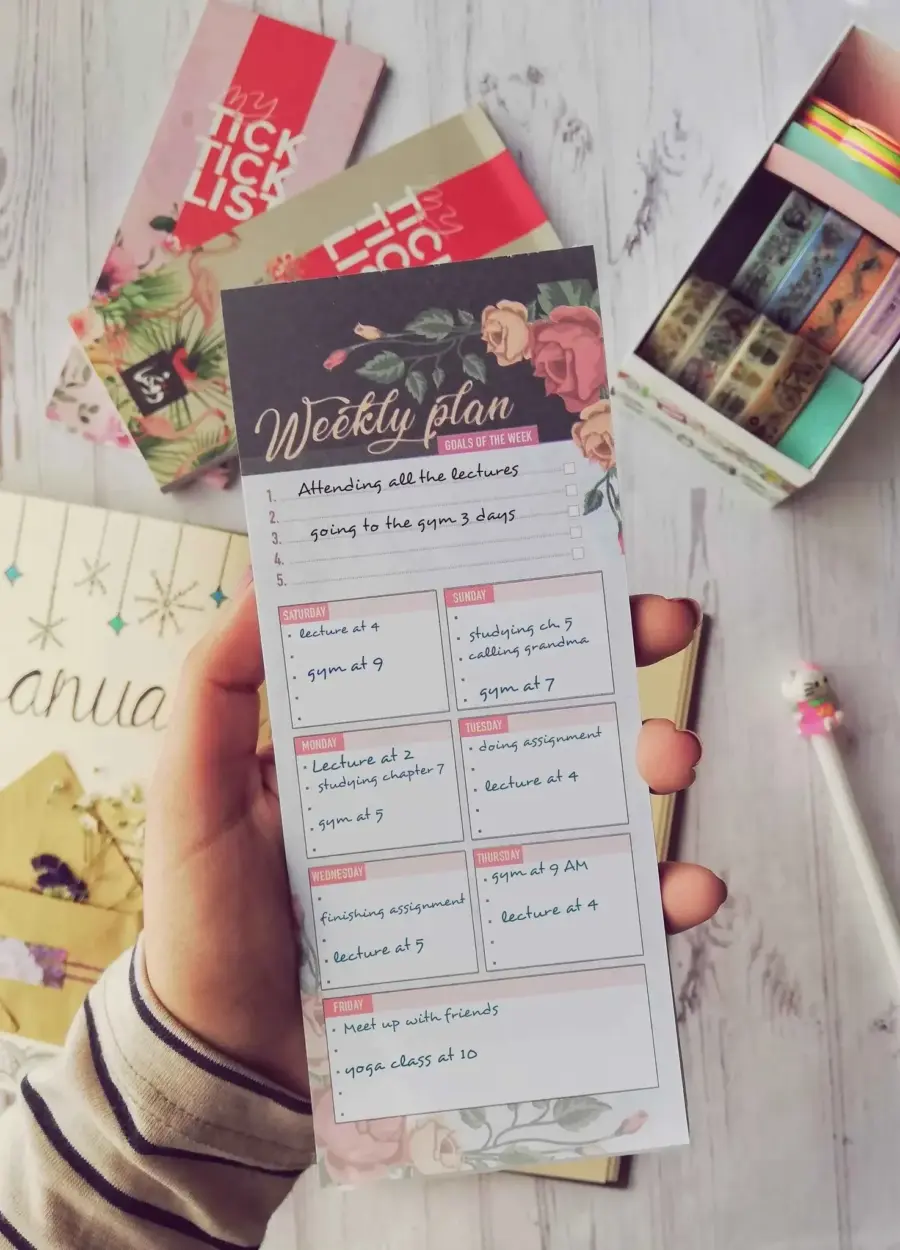 my
TICK
TICK
LIST
my
TIC
TIC
LI
Weekly plan
GOALS OF THE WEEK
1. Attending all the lectures
2.
3. going to the gym 3 days
4.
5.
SATURDAY
lecture at 4
gym at 9
SUNDAY
studying ch. 5
calling grandma
gym at 7
MONDAY
Lecture at 2
studying chapter 7
gym at 5
TUESDAY
doing assignment
lecture at 4
WEDNESDAY
finishing assignment
lecture at 5
THURSDAY
gym at 9 AM
lecture at 4
FRIDAY
Meet up with friends
yoga class at 10
anua